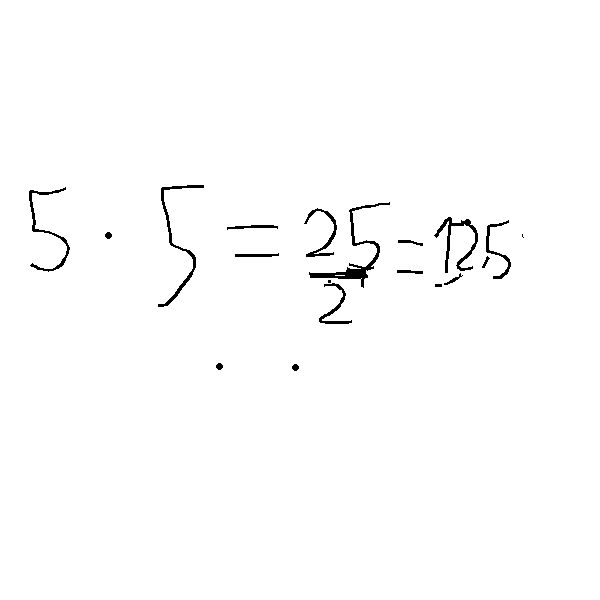 5 · 5 = 25/2 = 12,5